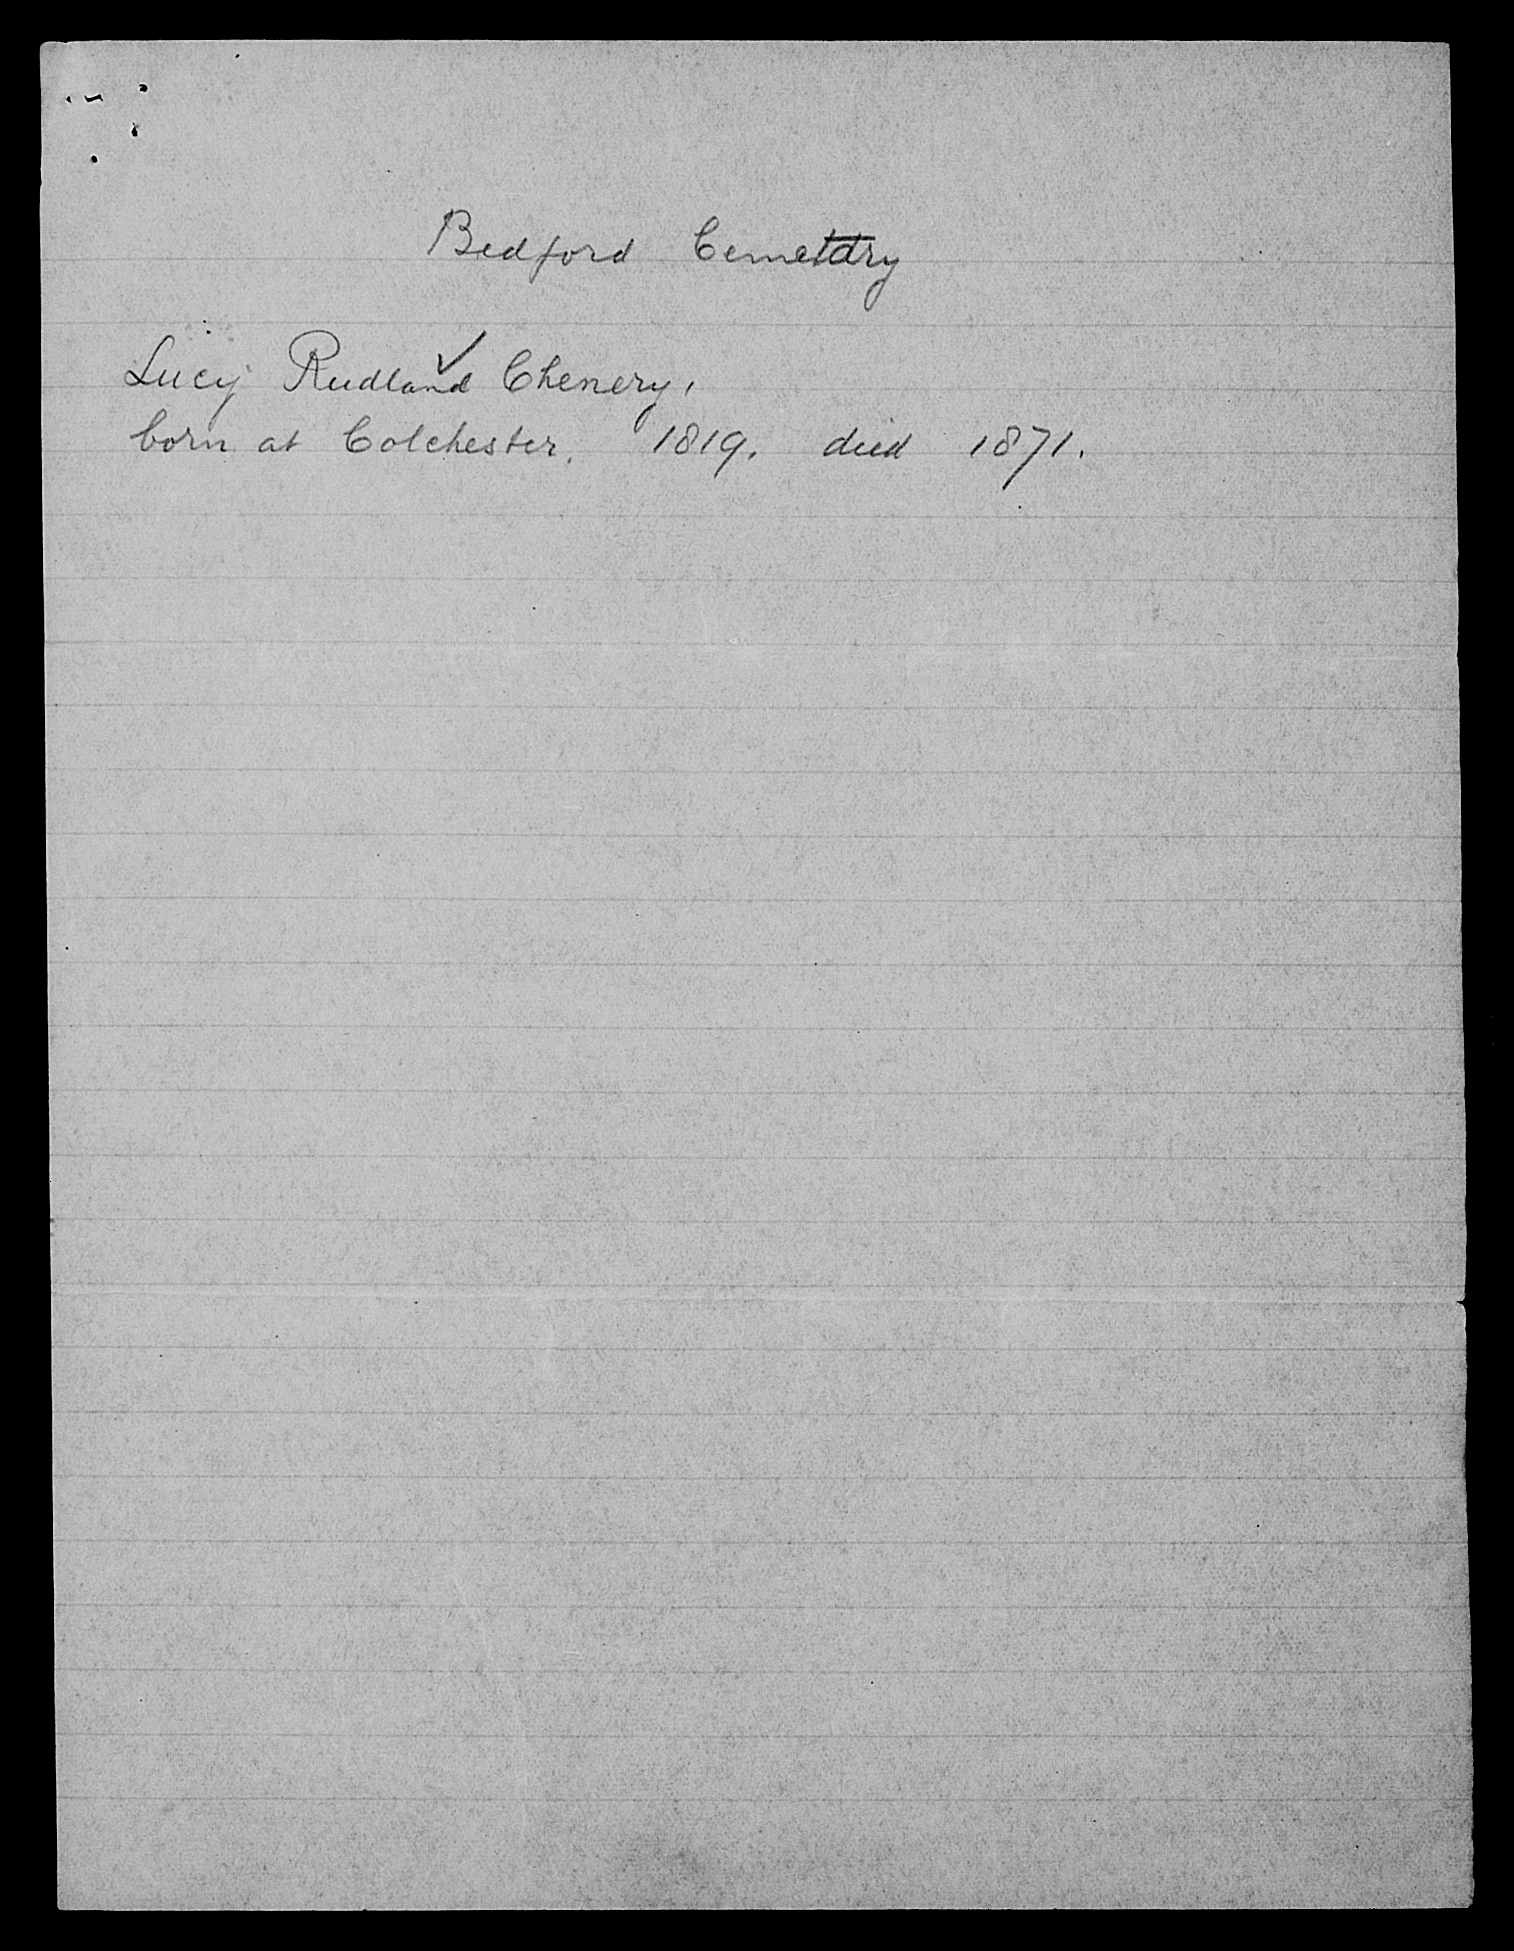 Bedford Cemetary
Lucy Rudland Chenery,
born at Colchester. 1819. died 1871.